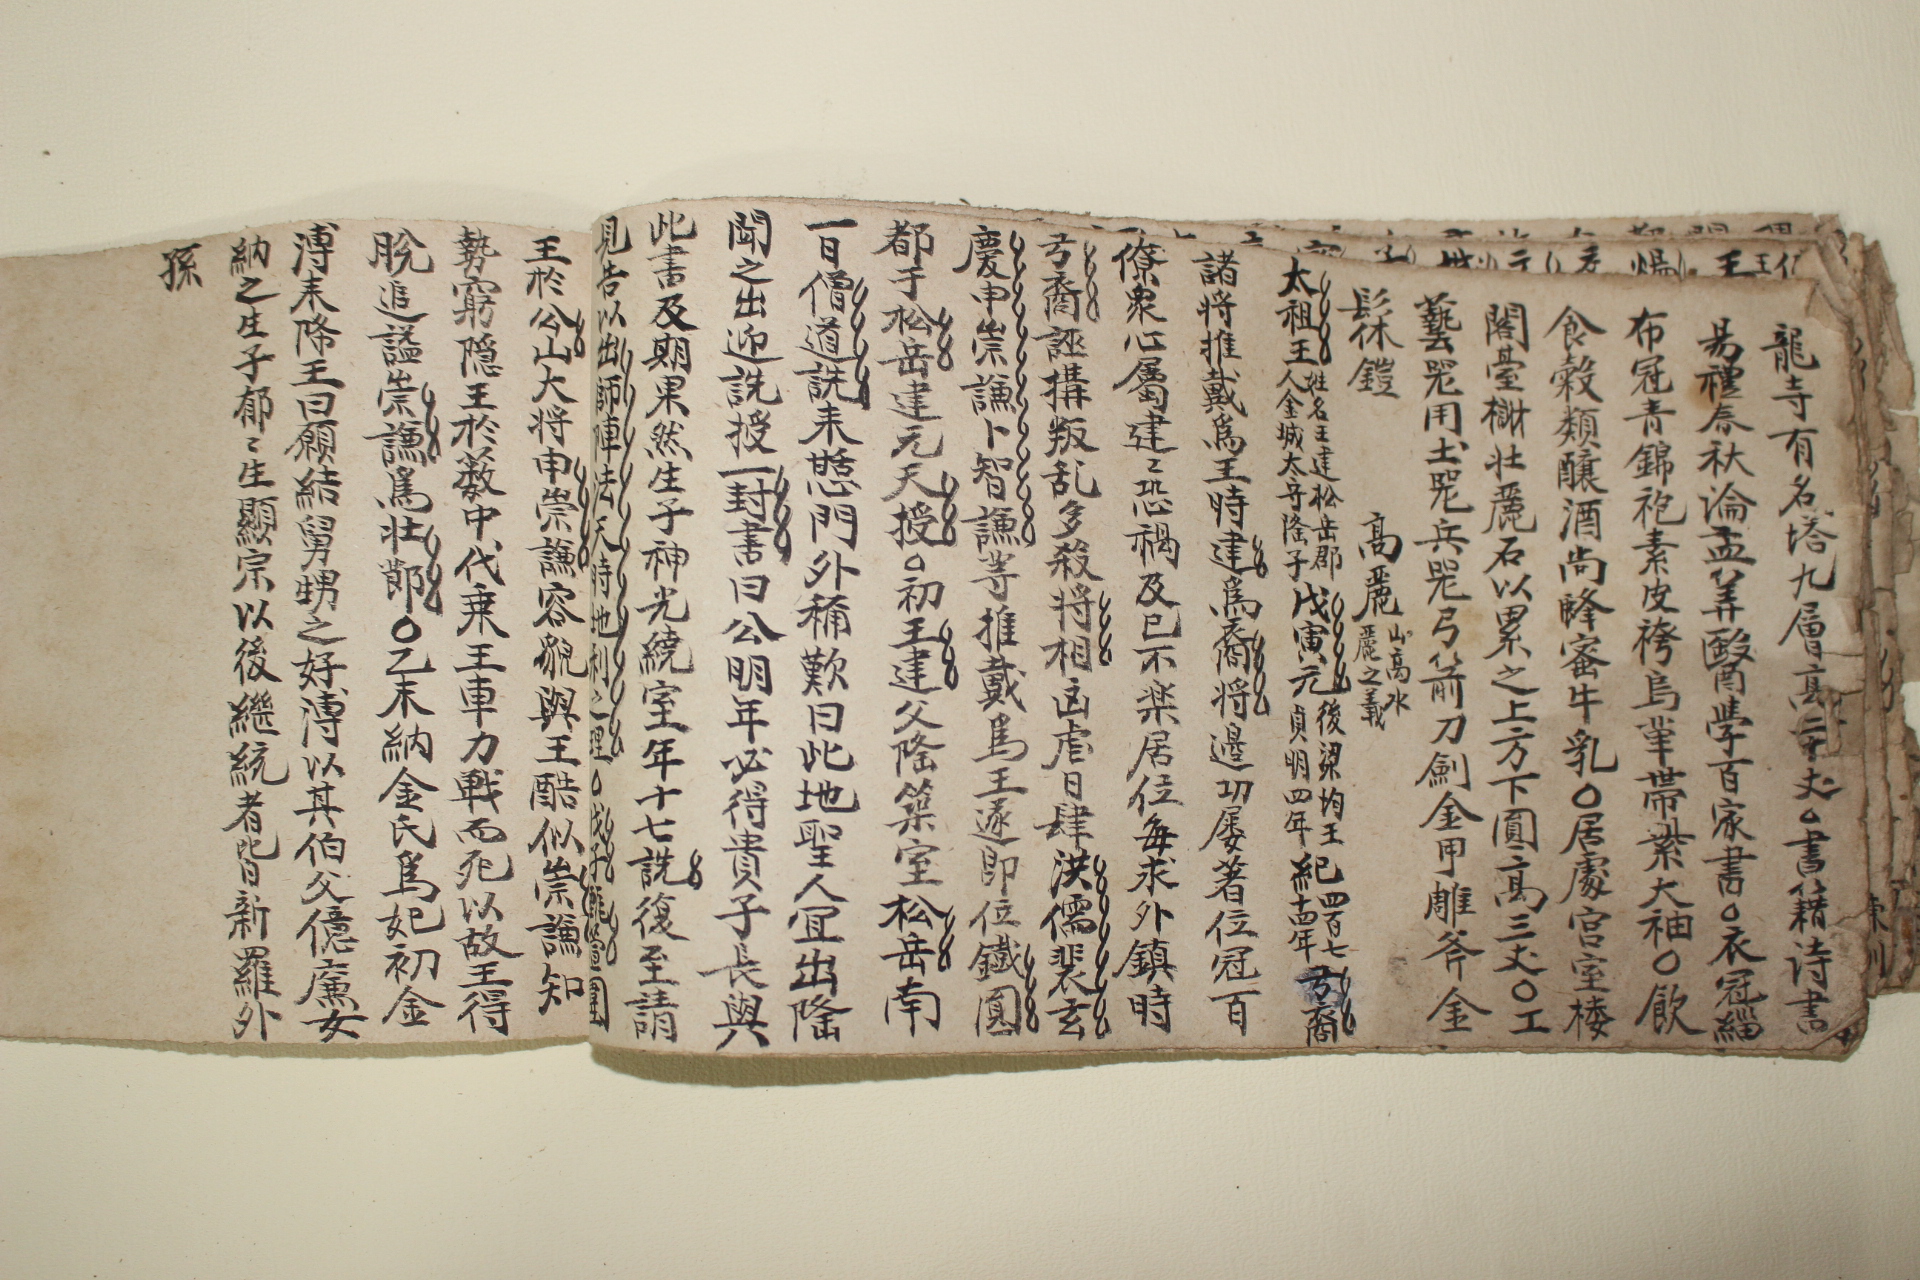 龍寺有名塔九層高二十丈○書籍詩書
易禮春秋論孟筭醫學百家書○衣冠緇
布冠青錦袍素皮袴烏革帶紫大袖○飲
食糓類釀酒尚蜂蜜牛乳○居處宮室楼
閣臺榭壮麗石以累之上方下圓高三丈○工
藝器用土器兵器弓箭刀劍金甲雕斧金
髹鎧
高麗 山高水麗之義
太祖王 姓名王建松岳郡人金城太守隆子 戊寅元 後梁均王貞明四年 紀 四百七十四年 弓裔
諸將推戴爲王時建爲裔將邉功屡著位冠百
僚衆心屬建〻恐禍及已不楽居位每求外鎮時
弓裔誣搆叛乱多殺將相凶虐日肆洪儒裴玄
慶申崇謙卜智謙等推戴爲王遂即位鐵圓
都于松岳建元天授○初王建父隆築室松岳南
一日僧道詵来憇門外稱歎曰此地聖人宜出隆
聞之出迎詵授一封書曰公明年必得貴子長與
此書及期果然生子神光繞室年十七詵復至請
見告以出師陣法天時地利之理○
王於公山大將申崇謙容貌與王酷似崇謙知
勢窮隐王於薮中代乗王車力戰而死以故王得
脫追謚崇謙爲壮節○乙未納金氏爲妃初金
溥来降王曰願結舅甥之好溥以其伯父億廉女
納之生子郁〻生顯宗以後繼統者皆新羅外
孫